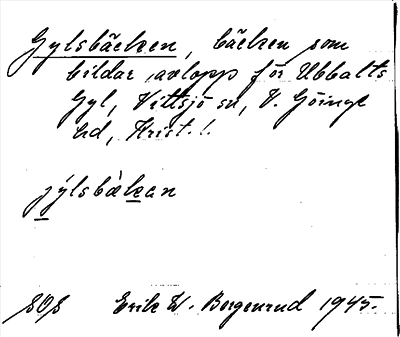 Gylsbäcken, bäcken som
bildar avlopp för Ubbalts
Gyl, Vittsjö sn, V. Göinge
hd, Krist. l.
jýlsbäkan
SOS Erik W. Borgenrud 1945.